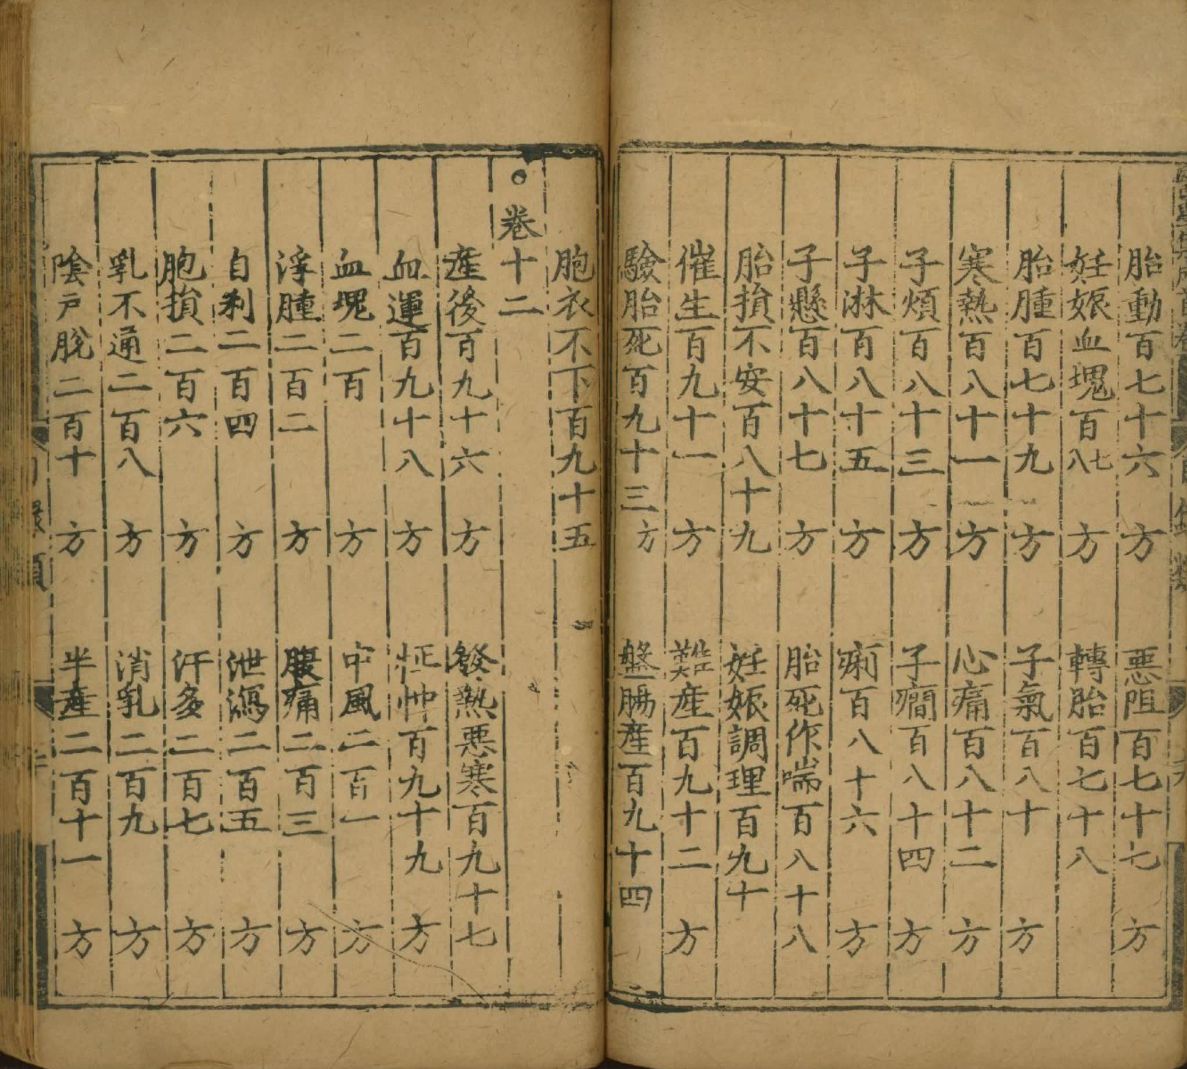 胎動百七十六 方 惡阻百七十七 方
妊娠血塊百七八 方 轉胎百七十八
胎腫百七十九 方 子氣百八十 方
寒熱百八十一 方 心痛百八十二 方
子煩百八十三 方 子癇百八十四 方
子淋百八十五 方 痢百八十六 方
子懸百八十七 方 胎死作喘百八十八
胎損不安百八十九 妊娠調理百九十
催生百九十一 方 難產百九十二 方
驗胎死百九十三 方 盤腸產百九十四
胞衣不下百九十五
卷十二
產後百九十六 方 發熱惡寒百九十七
血運百九十八 方 怔忡百九十九 方
血塊二百 方 中風二百一 方
浮腫二百二 方 腹痛二百三 方
自利二百四 方 泄瀉二百五 方
胞損二百六 方 汗多二百七 方
乳不通二百八 方 消乳二百九 方
陰戶脫二百十 方 半產二百十一 方